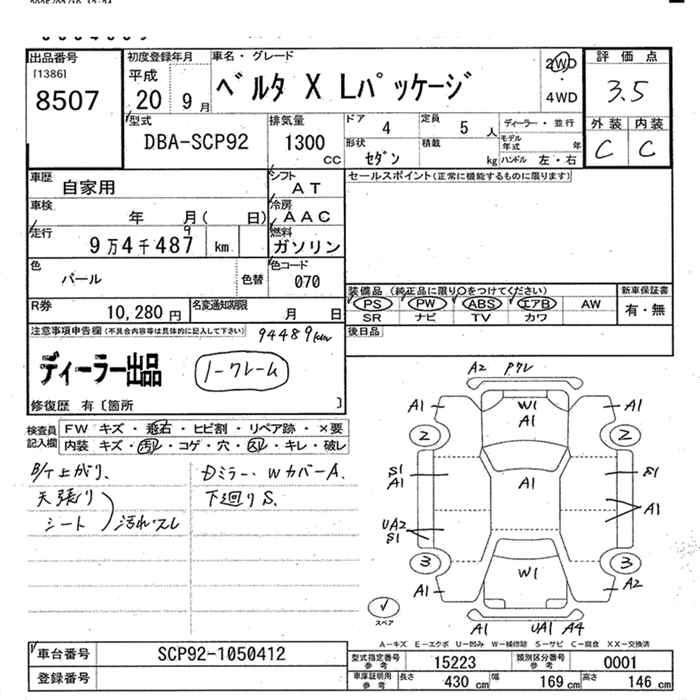 出品番号
[1386]
8507
初度登録年月
平成
20 9月
車名・グレード
ベルタ X Lパッケージ
2WD
4WD
評価点
3.5
外装 内装
C C
型式
DBA-SCP92
排気量
1300
CC
ドア 4
定員 5 人
ディーラー・並行
モデル年式 年
形状 セダン
積載 kg
ハンドル 左・右
車歴
自家用
シフト
AT
セールスポイント(正常に機能するものに限ります)
車検
年 月( 日)
冷房
AAC
走行
9万4千487 km
9
燃料
ガソリン
色
パール
色替
色コード
070
装備品(純正品に限り○をつけてください)
新車保証書
PS PW ABS エアB AW
有・無
SR ナビ TV カワ
R券
10,280円
名変通知期限
月 日
後日品
注意事項申告欄(不具合内容等は具体的に記入して下さい)
94489km
ディーラー出品
ノークレーム
修復歴 有〔箇所 〕
検査員記入欄
FW キズ・飛石・ヒビ割・リペア跡・×要
内装 キズ・汚レ・コゲ・穴・スレ・キレ・破レ
B/T上がり、
天張り
シート
汚れスレ
Dミラー、WカバーA、
下廻りS、
A2
A1 W1 A1
A1
2 2
S1 S1
A1 A1
A1
UA2
S1
3 3
W1
A1 A2
スペア
A1 UA1 A4
A―キズ E―エクボ U―凹み W―補修跡 S―サビ C―腐食 XX―交換済
車台番号
SCP92-1050412
登録番号
型式指定番号 参考
15223
類別区分番号 参考
0001
車庫証明用 参考
長さ 430 cm
幅 169 cm
高さ 146 cm